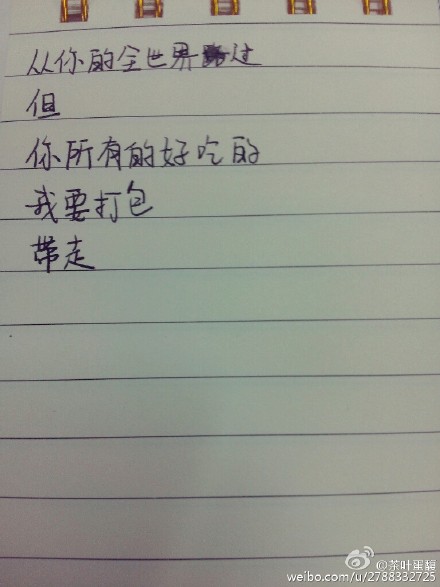 从你的全世界路过
但
你所有的好吃的
我要打包
带走
@茶叶蛋馥
weibo.com/u/2788332725